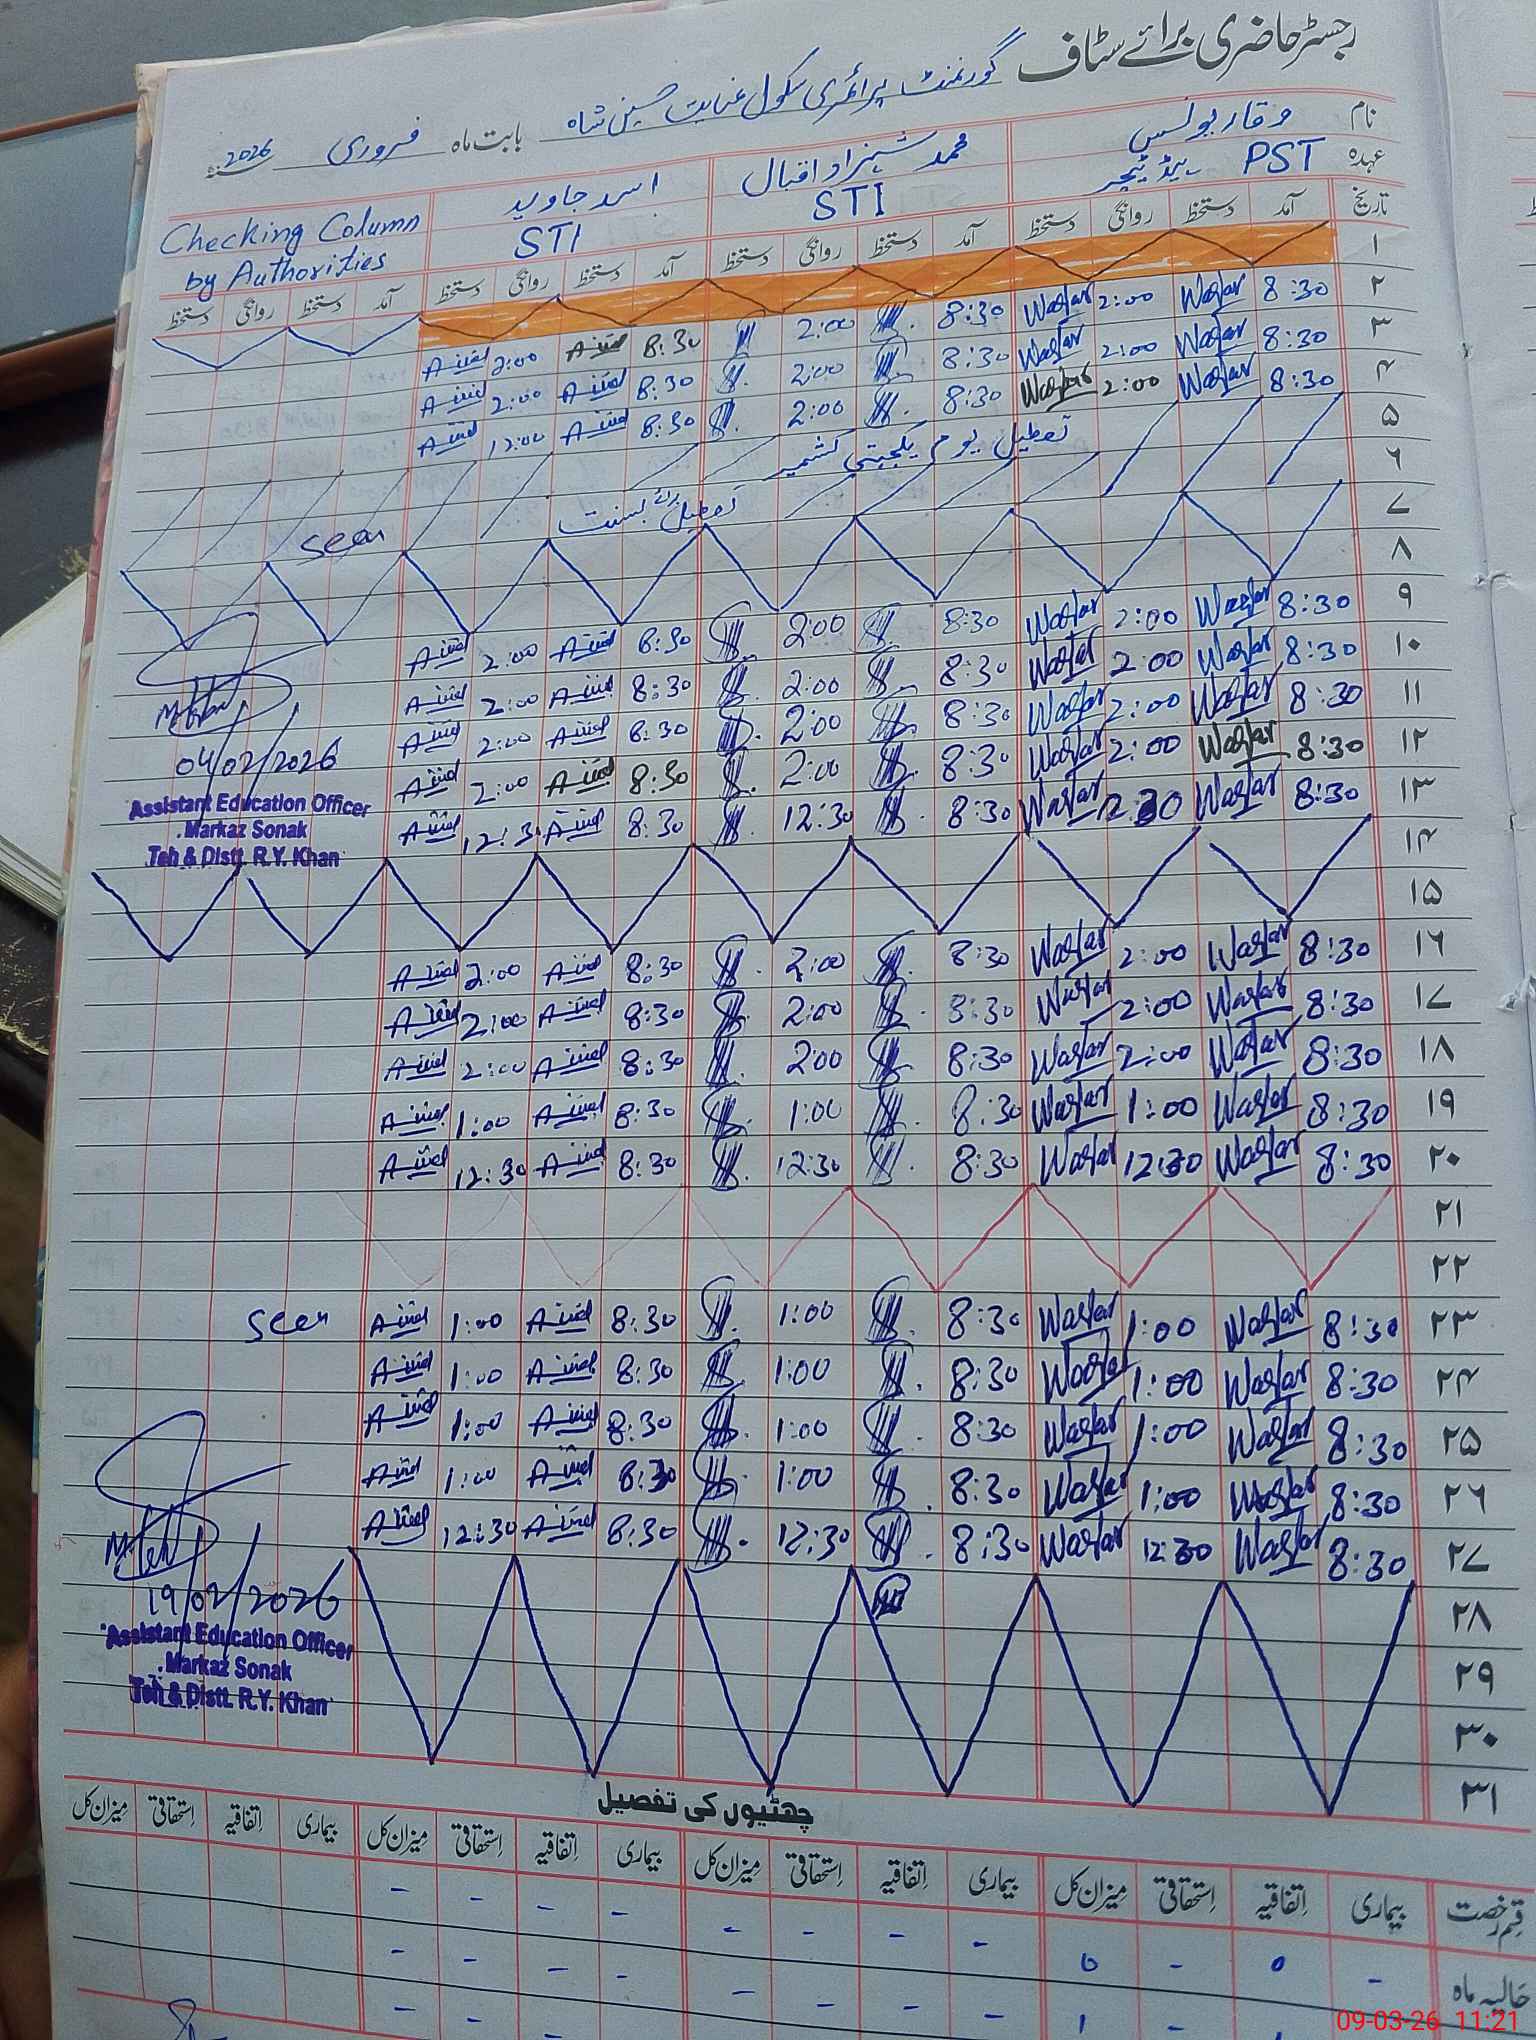 رجسٹر حاضری برائے سٹاف
گورنمنٹ پرائمری سکول عنایت حسین شاہ بابت ماہ فروری سنہ 2026
نام وقار یونس محمد شہزاد اقبال اسد جاوید Checking Column by Authorities
عہدہ PST ہیڈ ٹیچر STI STI
تاریخ آمد دستخط روانگی دستخط آمد دستخط روانگی دستخط آمد دستخط روانگی دستخط آمد دستخط روانگی دستخط
۱
۲ 8:30 Waqar 2:00 Waqar 8:30 2:00 8:30 2:00
۳ 8:30 Waqar 2:00 Waqar 8:30 2:00 8:30 2:00
۴ 8:30 Waqar 2:00 Waqar 8:30 2:00 8:30 12:00
۵ تعطیل یوم یکجہتی کشمیر
۶ تعطیل برائے بسنت
۷ seen
۸
۹ 8:30 Waqar 2:00 Waqar 8:30 2:00 8:30 2:00
۱۰ 8:30 Waqar 2:00 Waqar 8:30 2:00 8:30 2:00
۱۱ 8:30 Waqar 2:00 Waqar 8:30 2:00 8:30 2:00
04/02/2026
۱۲ 8:30 Waqar 2:00 Waqar 8:30 2:00 8:30 2:00
۱۳ 8:30 Waqar 12:30 Waqar 8:30 12:30 8:30 12:3
Assistant Education Officer
Markaz Sonak
Teh & Distt. R.Y. Khan
۱۴
۱۵
۱۶ 8:30 Waqar 2:00 Waqar 8:30 2:00 8:30 2:00
۱۷ 8:30 Waqar 2:00 Waqar 8:30 2:00 8:30 2:00
۱۸ 8:30 Waqar 2:00 Waqar 8:30 2:00 8:30 2:00
۱۹ 8:30 Waqar 1:00 Waqar 8:30 1:00 8:30 1:00
۲۰ 8:30 Waqar 12:30 Waqar 8:30 12:30 8:30 12:30
۲۱
۲۲
۲۳ 8:30 Waqar 1:00 Waqar 8:30 1:00 8:30 1:00 seen
۲۴ 8:30 Waqar 1:00 Waqar 8:30 1:00 8:30 1:00
۲۵ 8:30 Waqar 1:00 Waqar 8:30 1:00 8:30 1:00
۲۶ 8:30 Waqar 1:00 Waqar 8:30 1:00 8:30 1:00
۲۷ 8:30 Waqar 12:30 Waqar 8:30 12:30 8:30 12:30
۲۸
19/02/2026
Assistant Education Officer
Markaz Sonak
Teh & Distt. R.Y. Khan
۲۹
۳۰
۳۱
چھٹیوں کی تفصیل
قسم رخصت بیماری اِتفاقیہ اِستحقاقی مِیزان کل بیماری اِتفاقیہ اِستحقاقی مِیزان کل بیماری اِتفاقیہ اِستحقاقی مِیزان کل بیماری اِتفاقیہ اِستحقاقی مِیزان کل
حالیہ ماہ - 0 - 0 - - - - - - - -
09-03-26 11:21